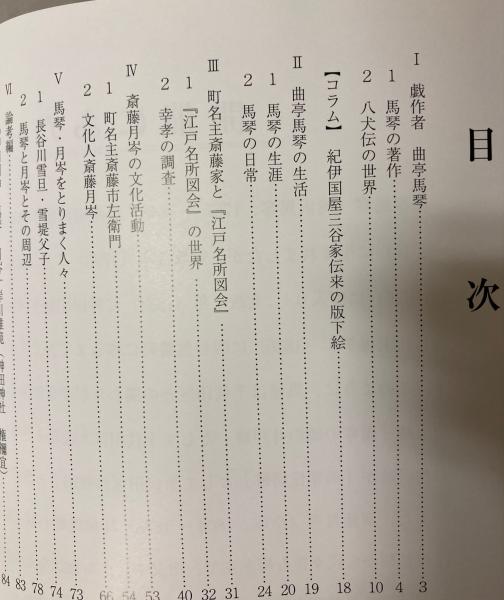 目次
Ⅰ 戯作者 曲亭馬琴 3
1 馬琴の著作 4
2 八犬伝の世界 10
【コラム】 紀伊国屋三谷家伝来の版下絵 18
Ⅱ 曲亭馬琴の生活 19
1 馬琴の生涯 20
2 馬琴の日常 24
Ⅲ 町名主斎藤家と『江戸名所図会』 31
1 『江戸名所図会』の世界 32
2 幸孝の調査 40
Ⅳ 斎藤月岑の文化活動 53
1 町名主斎藤市左衛門 54
2 文化人斎藤月岑 66
Ⅴ 馬琴・月岑をとりまく人々 73
1 長谷川雪旦・雪堤父子 74
2 馬琴と月岑とその周辺 78
Ⅵ 論考編 83
岸川雅範（神田神社 権禰宜） 84